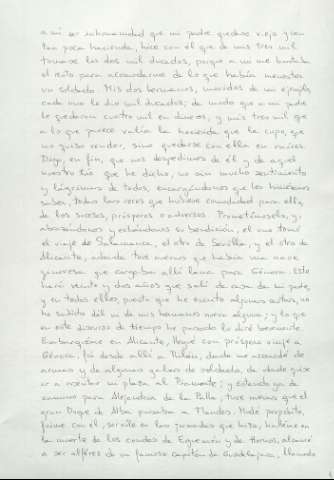 a mí ser inhumanidad que mi padre quedase viejo y con
tan poca hacienda, hice con él que de mis tres mil
tomase los dos mil ducados, porque a mí me bastaba
el resto para acomodarme de lo que había menester
un soldado. Mis dos hermanos, movidos de mi ejemplo,
cada uno le dio mil ducados; de modo que a mi padre
le quedaron cuatro mil en dineros, y más tres mil que
a lo que parece valía la hacienda que le cupo, que
no quiso vender, sino quedarse con ella en raíces.
Digo, en fin, que nos despedimos de él y de aquel
nuestro tío que he dicho, no sin mucho sentimiento
y lágrimas de todos, encargándonos que les hiciésemos
saber, todas las veces que hubiese comodidad para ello,
de los sucesos, prósperos o adversos. Prometímoselo, y,
abrazándonos y echándonos su bendición, el uno tomó
el viaje de Salamanca, el otro de Sevilla, y el otro de
Alicante, adonde tuve nuevas que había una nave
ginovesa que cargaba allí lana para Génova. Este
hará veinte y dos años que salí de casa de mi padre,
y en todos ellos, puesto que he escrito algunas cartas, no
he sabido de él ni de mis hermanos nueva alguna; y lo que
en este discurso de tiempo he pasado lo diré brevemente.
Embarquéme en Alicante, llegué con próspero viaje a
Génova, fui desde allí a Milán, donde me acomodé de
armas y de algunas galas de soldado, de donde quise
ir a asentar mi plaza al Piamonte; y estando ya de
camino para Alejandría de la Palla, tuve nuevas que el
gran Duque de Alba pasaba a Flandes. Mudé propósito,
fuime con él, servíle en las jornadas que hizo, halléme en
la muerte de los condes de Eguemón y de Hornos, alcancé
a ser alférez de un famoso capitán de Guadalajara, llamado